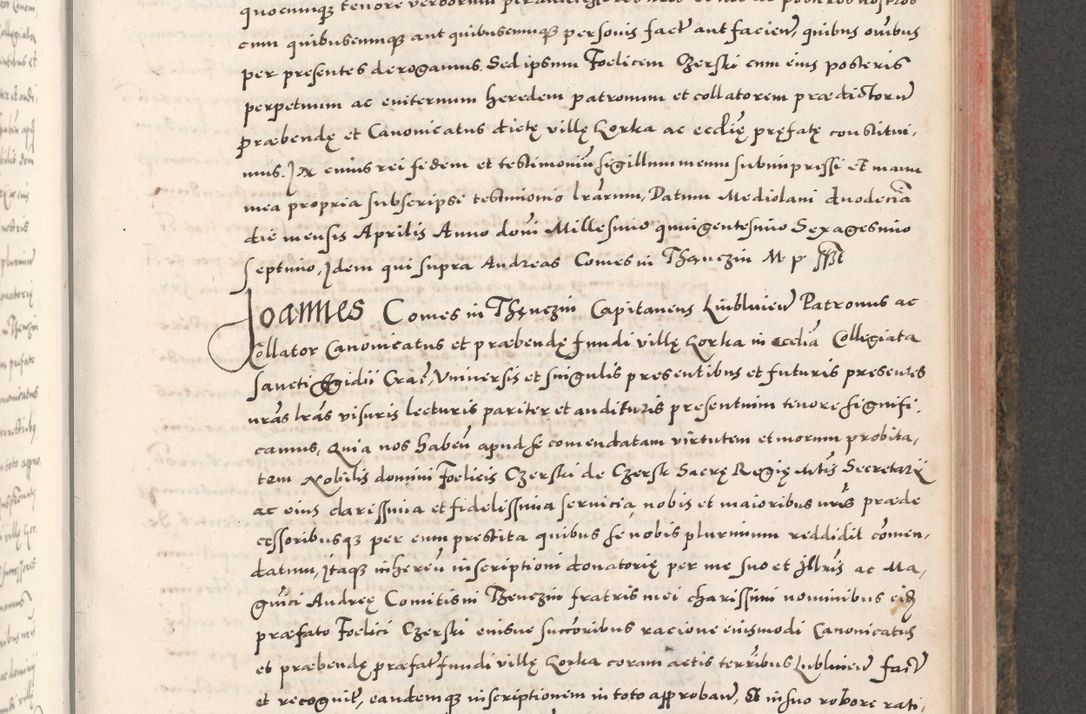 quocumque tenore verborum
cum quibuscumq̨ aut quibuscumq̨ personis fact̃ aut facień, quibus om̃ibus
per presentes derogamus. Sed ipsum Foelicem Czerski cum eius posteris
perpetuum ac eviternum heredem patronum et collatorem prædictorũ
præbendę et Canonicatus dictę villę Gorka ac eccĺię pręfatę constitui,
mus. In cuius rei fidem et testimoniũ sigillum meum subimpressi et manu
mea propria subscripsi testimonio lr̃arum, Datum Mediolani duodecĩa
die mensis Aprilis Anno dom̃i Millesimo quingentesimo Sexagesimo
Septimo, Idem qui supra Andreas Comes in Thęnczin M p sst
Joannes Comes in Thęnczin Capitaneus Lublinień Patronus ac
Collator Canonicatus et præbendę fundi villę Gorka in eccliã Collegiata
Sancti Egidii Crac̃, Universis et singulis presentibus et futuris presentes
nr̃as lr̃as visuris lecturis pariter et audituris presentium tenore signifi,
camus, Quia nos habeñ apud se comendatam virtutem et morum probita,
tem Nobilis domini Foelicis Czerski de Czersk Sacrę Regię Mtis Secretarii
ac eius clarissima et fidelissima servicia nobis et maioribus nr̃is præde
cessoribusq̨ per eum prestita quibus se nobis plurimum reddidit com̃en,
datum, Itaq̨ inhereñ inscriptioni donatorię per me suo et Illr̃is ac Ma,
gnĩci Andreę Comitis in Thenczin fratris mei charissimi nominibus eidẽ
præfato Foelici Czerski eiusve succõribus racione eiusmodi Canonicatus
et præbendę præfat̃ fundi villę Gorka coram actis terr̃ibus Lublinień fact̃
et recognit̃, eandemq̨ inscriptionem in toto approbań, Et in suo robore rati,